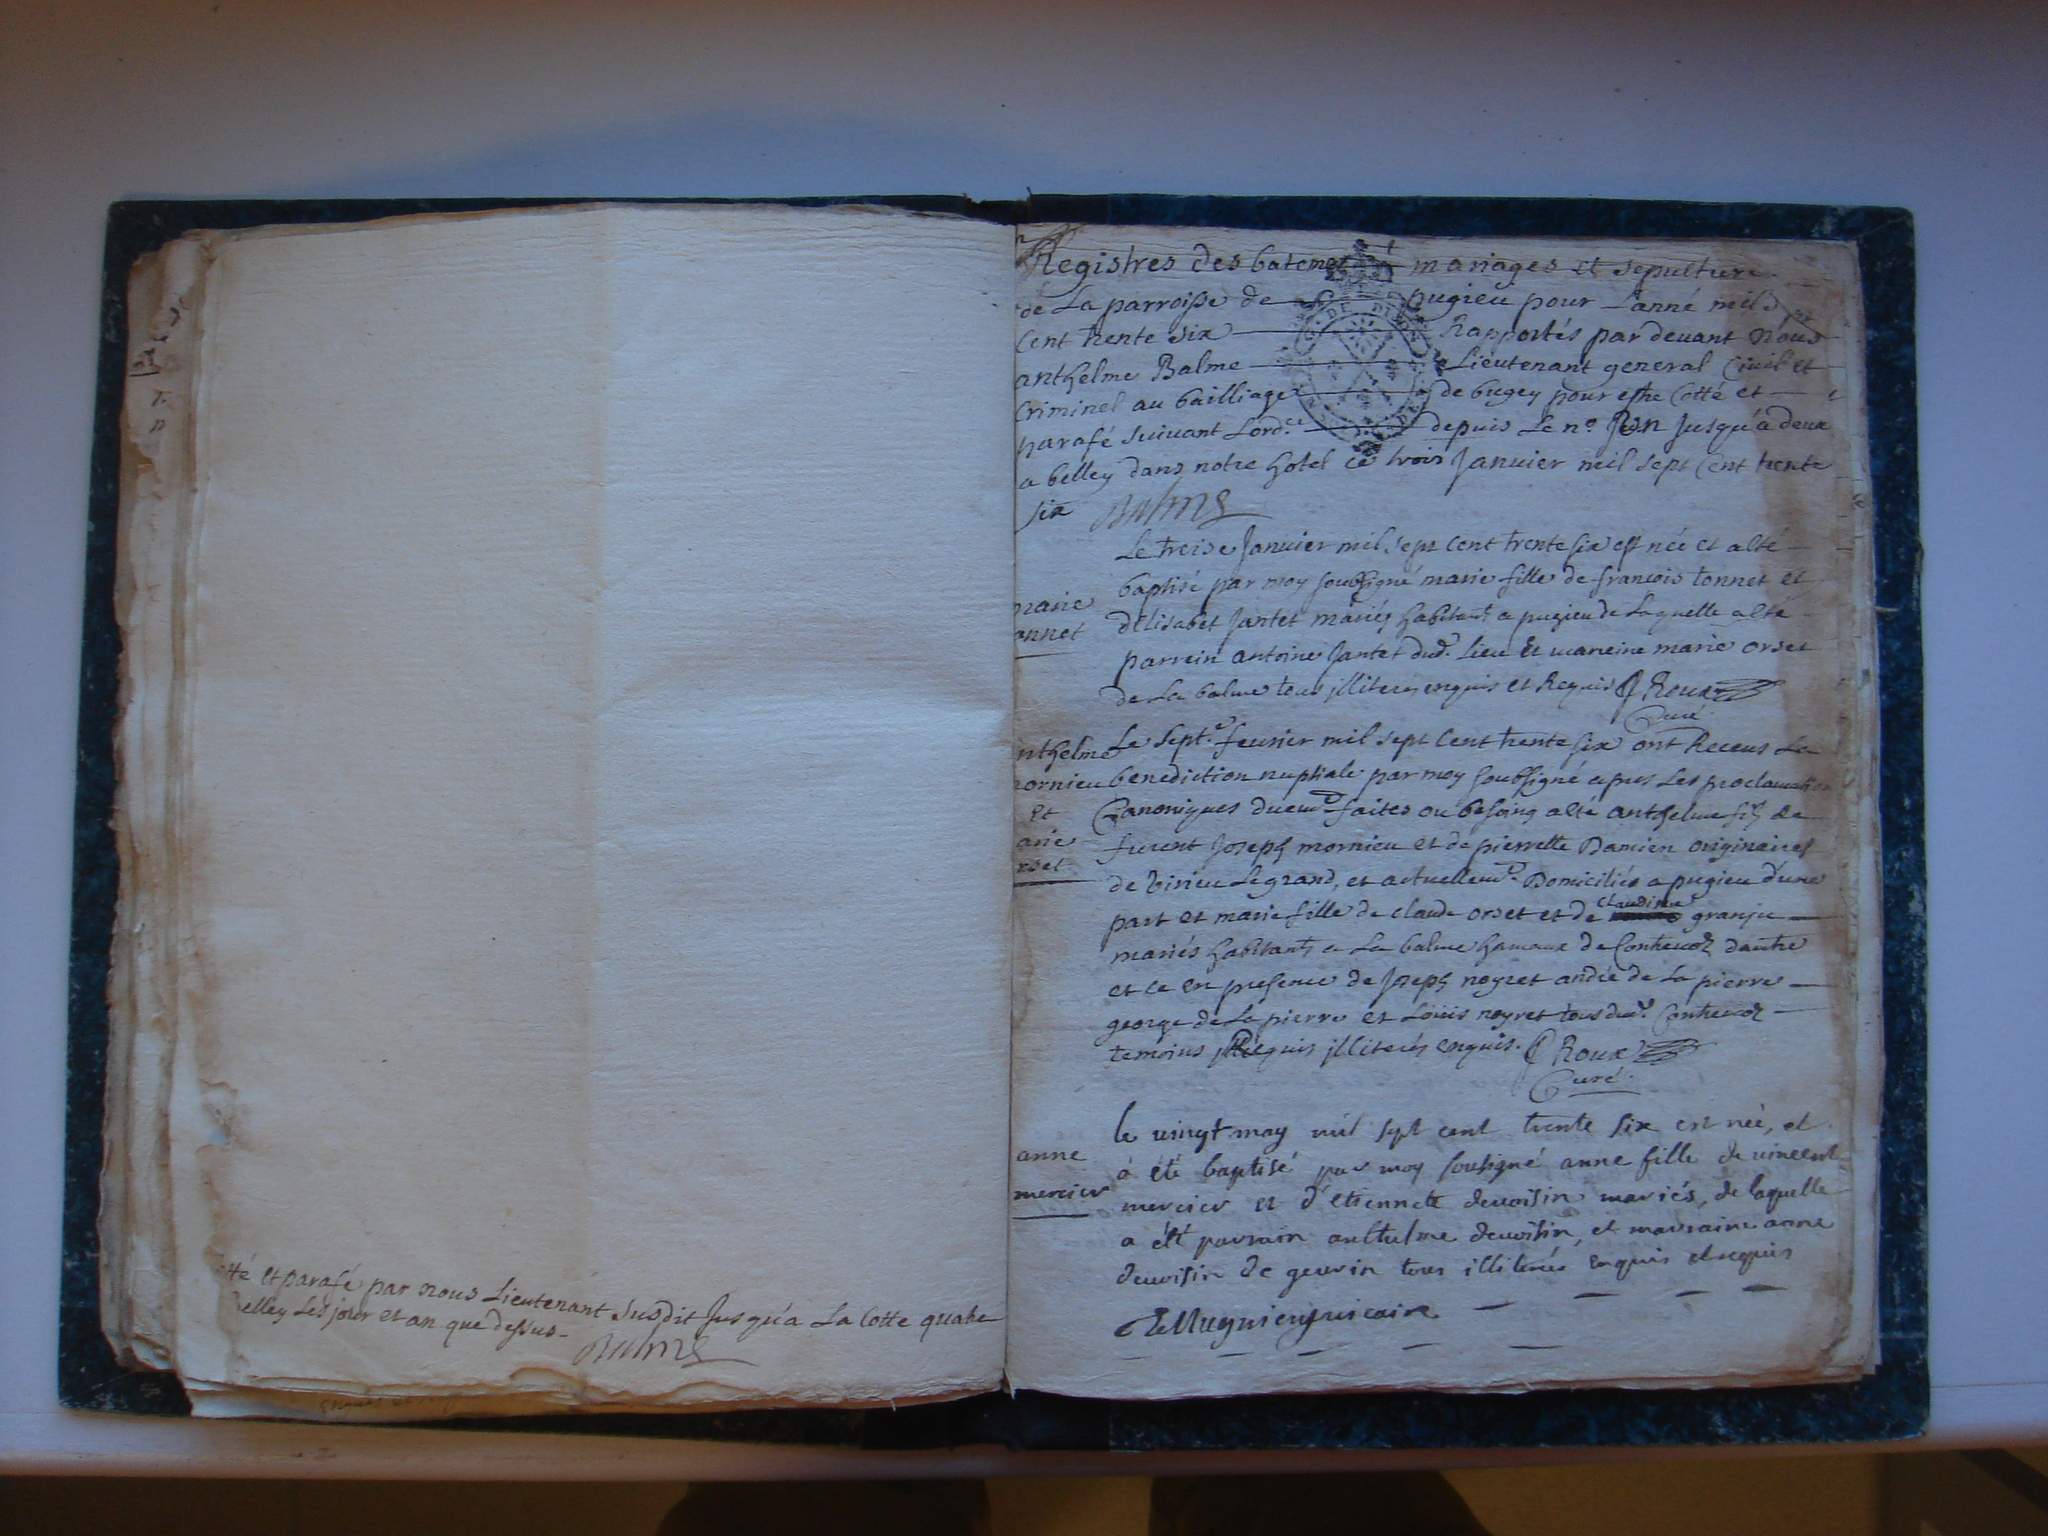 et parafé par nous Lieutenant susdit Jusqu'a La Cotte quatre
Les jour et an que dessus
Balme
Registres des mariages et sepulture
de La parroisse de pugieu pour Lanné mil
Cent trente six Rapportés par devant Nous
anthelme Balme Lieutenant general Civil et
Criminel au bailliage de bugey pour estre Cotté et
parafé suivant Lord.ce depuis Le n.o Jusqu'a deux
a belley dans notre hotel ce trois Janvier mil sept Cent trente
six Balme
Le treise Janvier mil sept Cent trente six est née et a esté
baptisé par moy soussigné marie fille de francois tonnet et
delisabet Jantet mariés habitant a pugieu de Laquelle a esté
parrein antoine Jantet dud. Lieu Et mareine marie orset
de La balme tous jlliterés enquis et Requis Roux
Curé
Le sept.e fevrier mil sept Cent trente six ont Receus La
benediction nuptiale par moy soussigné apres Les proclamation
Canoniques duem.t faites ou besoing a esté anthelme fils de
furent Joseph mornieu et de pierrette Damien originaires
de Virieu Legrand, et actuellem.t Domiciliés a pugieu d'une
part et marie fille de claude orset et de claudine granju
mariés habitants a La balme hamaux de Contrevoz dautre
et ce en presence de Joseph noyret andré de La pierre
george de La pierre et Louis noyret tous dud. Contrevoz
temoins Requis jlliterés enquis. Roux
Curé
anne
mercier
le vingt may mil sept cent trente six est née, et
a été baptisé par moy sousigné anne fille de vincent
mercier et d'etiennete devoisin mariés, de laquelle
a été parrain anthelme devoisin, et marraine anne
devoisin de gevrin tous illiterés enquis et requis
vicaire